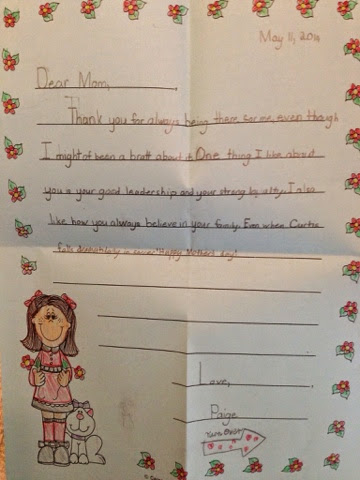 May 11, 2014
Dear Mom,
Thank you for always being there for me, even though
I might of been a bratt about it. One thing I like about
you is your good leadership and your strong loyalty. I also
like how you always believe in your family. Even when Curtis
falls dramaticaly in soccer. Happy Mothers day!
Love,
Paige
Turn Over